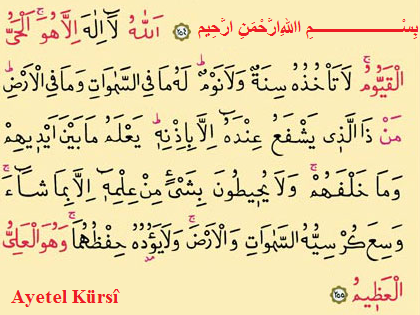 بِسْمِ اللهِ الرَّحْمٰنِ الرَّحِيمِ ﴿٢٥٤﴾ اَللّٰهُ لَٓا اِلٰهَ اِلَّا هُوَۚ اَلْحَيُّ
الْقَيُّومُۚ لَا تَأْخُذُهُ سِنَةٌ وَلَا نَوْمٌۜ لَهُ مَا فِي السَّمٰوَاتِ وَمَا فِي الْاَرْضِۜ
مَنْ ذَا الَّذ۪ي يَشْفَعُ عِنْدَهُٓ اِلَّا بِاِذْنِه۪ۜ يَعْلَمُ مَا بَيْنَ اَيْد۪يهِمْ
وَمَا خَلْفَهُمْۚ وَلَا يُح۪يطُونَ بِشَيْءٍ مِنْ عِلْمِه۪ٓ اِلَّا بِمَا شَٓاءَۚ
وَسِعَ كُرْسِيُّهُ السَّمٰوَاتِ وَالْاَرْضَۚ وَلَا يَؤُ۫دُهُ حِفْظُهُمَاۚ وَهُوَ الْعَلِيُّ
الْعَظ۪يمُ ﴿٢٥٥﴾
Ayetel Kürsî